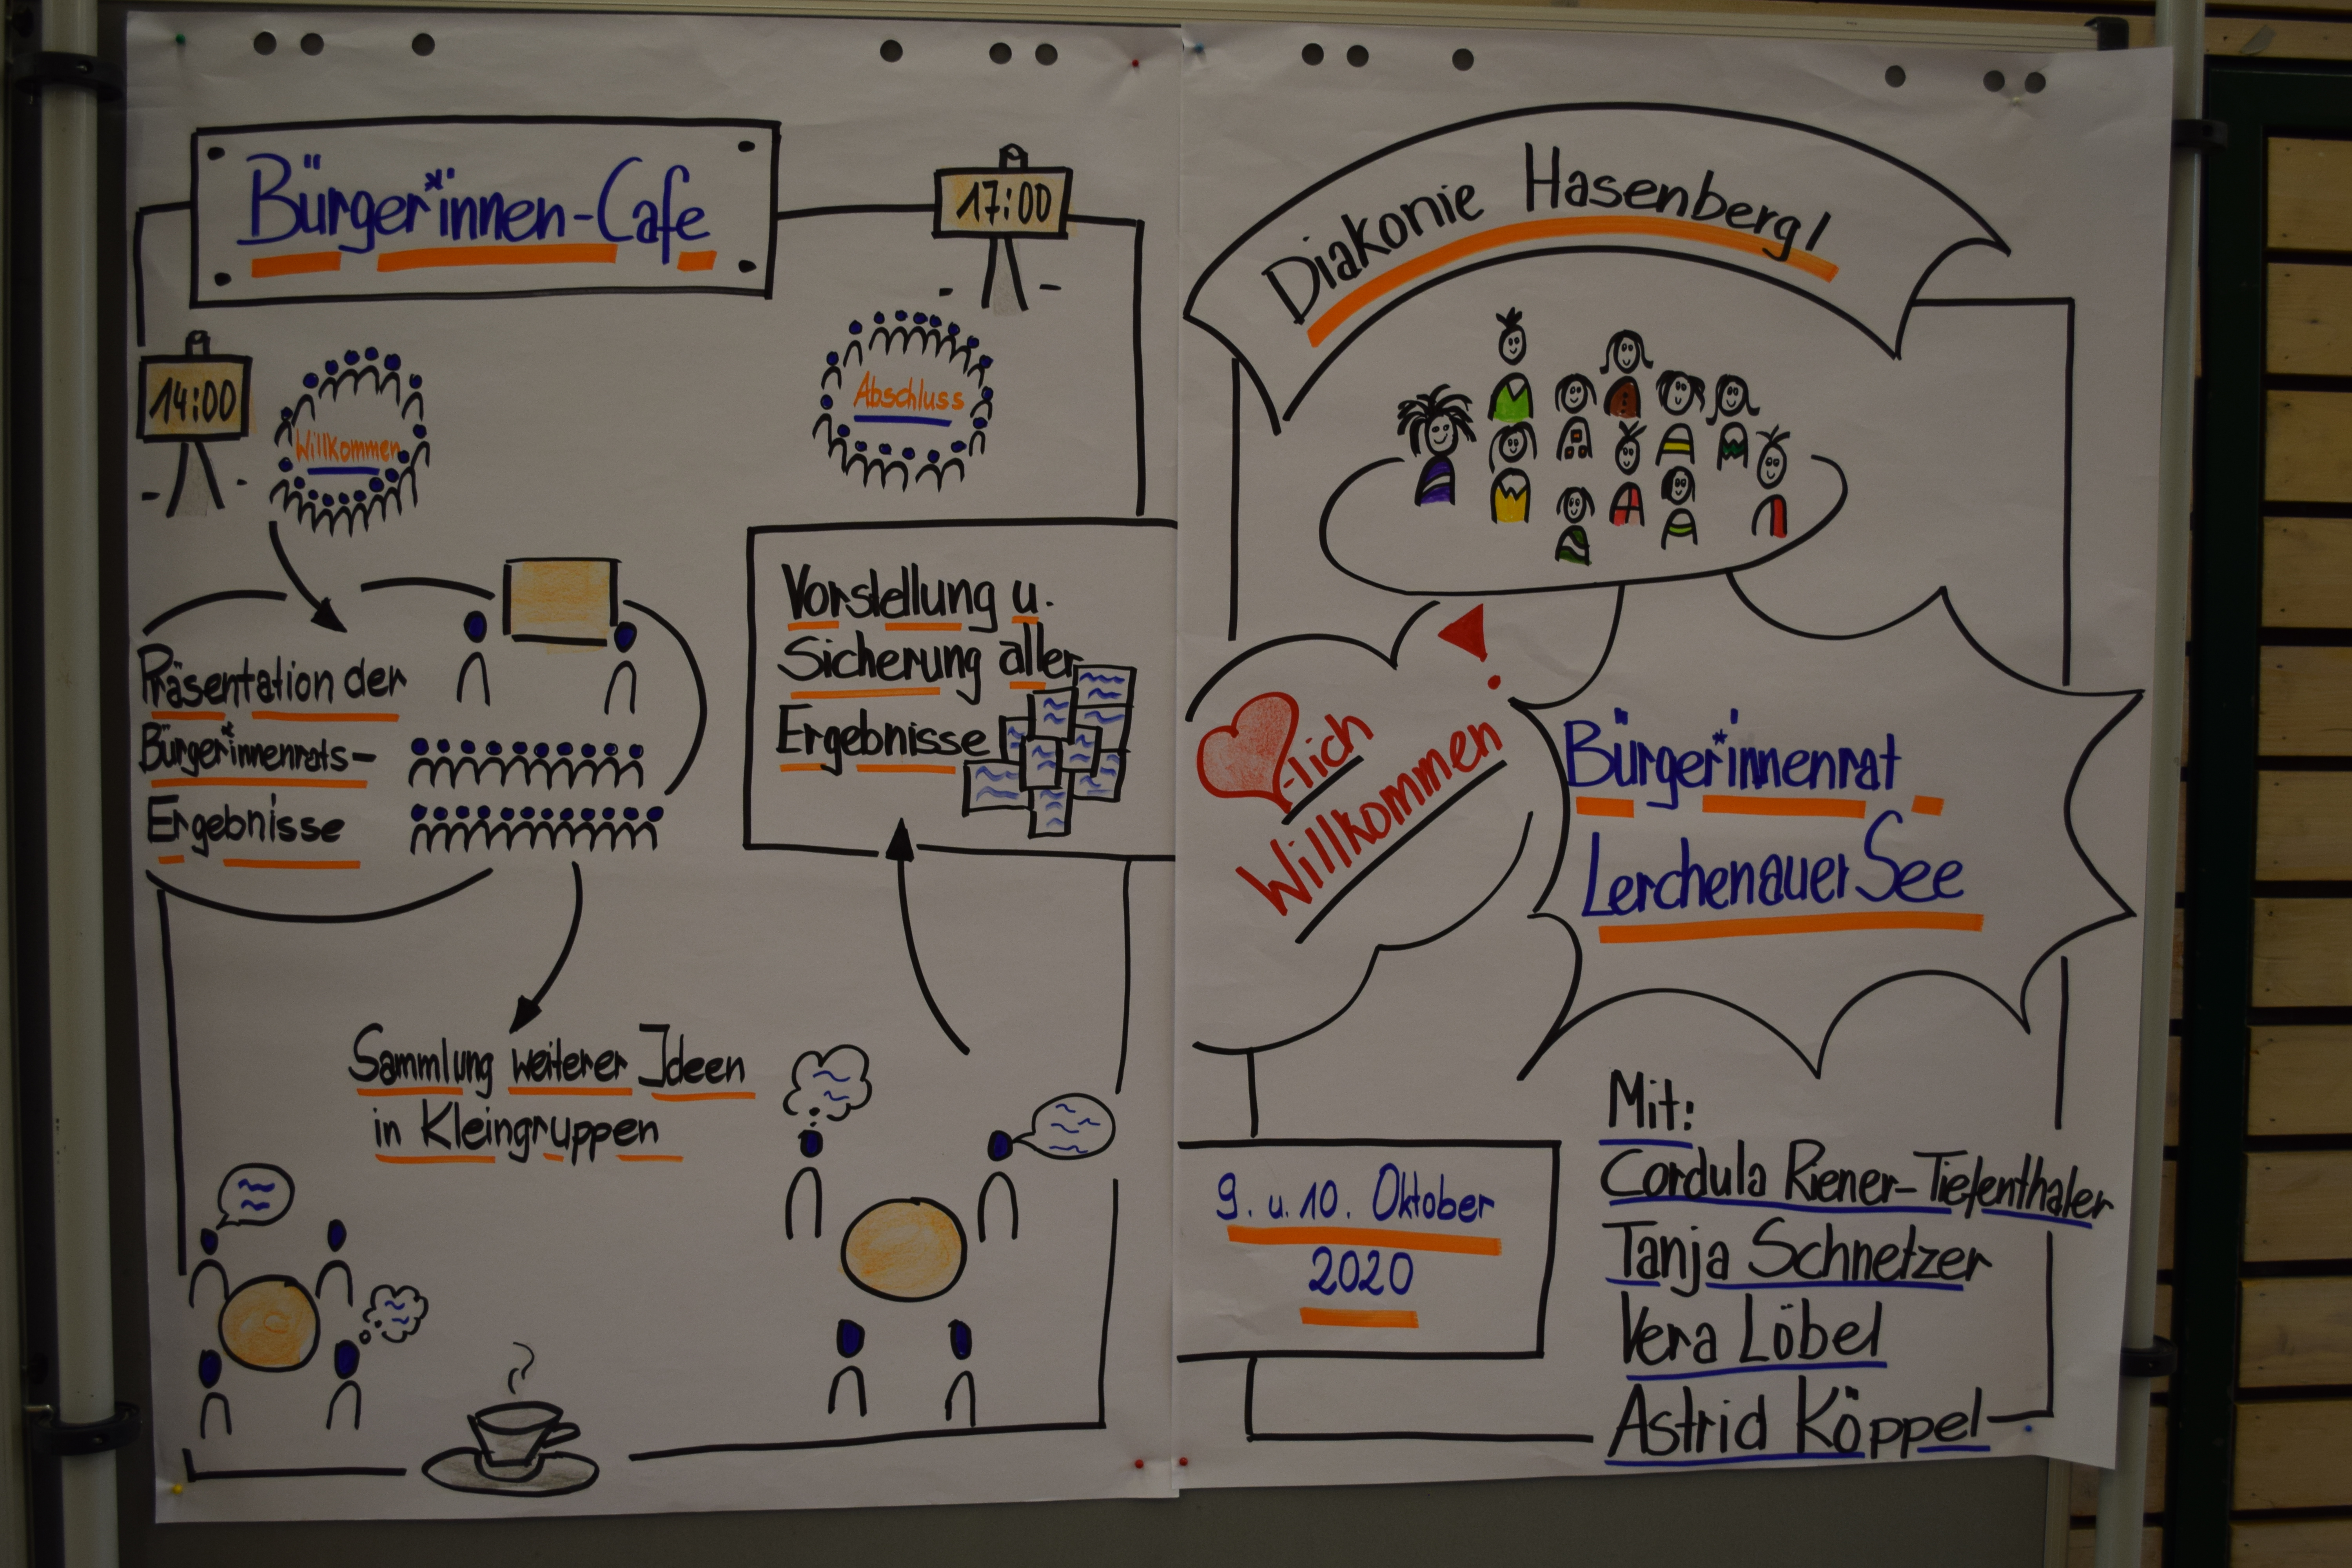 Bürger*innen-Cafe
14:00
Willkommen
Präsentation der
Bürger*innenrats-
Ergebnisse
Sammlung weiterer Ideen
in Kleingruppen
Vorstellung u.
Sicherung aller
Ergebnisse
17:00
Abschluss
Diakonie Hasenbergl
-lich
Willkommen
Bürger*innenrat
Lerchenauer See
9. u. 10. Oktober
2020
Mit:
Cordula Riener-Tiefenthaler
Tanja Schnetzer
Vera Löbel
Astrid Köppel